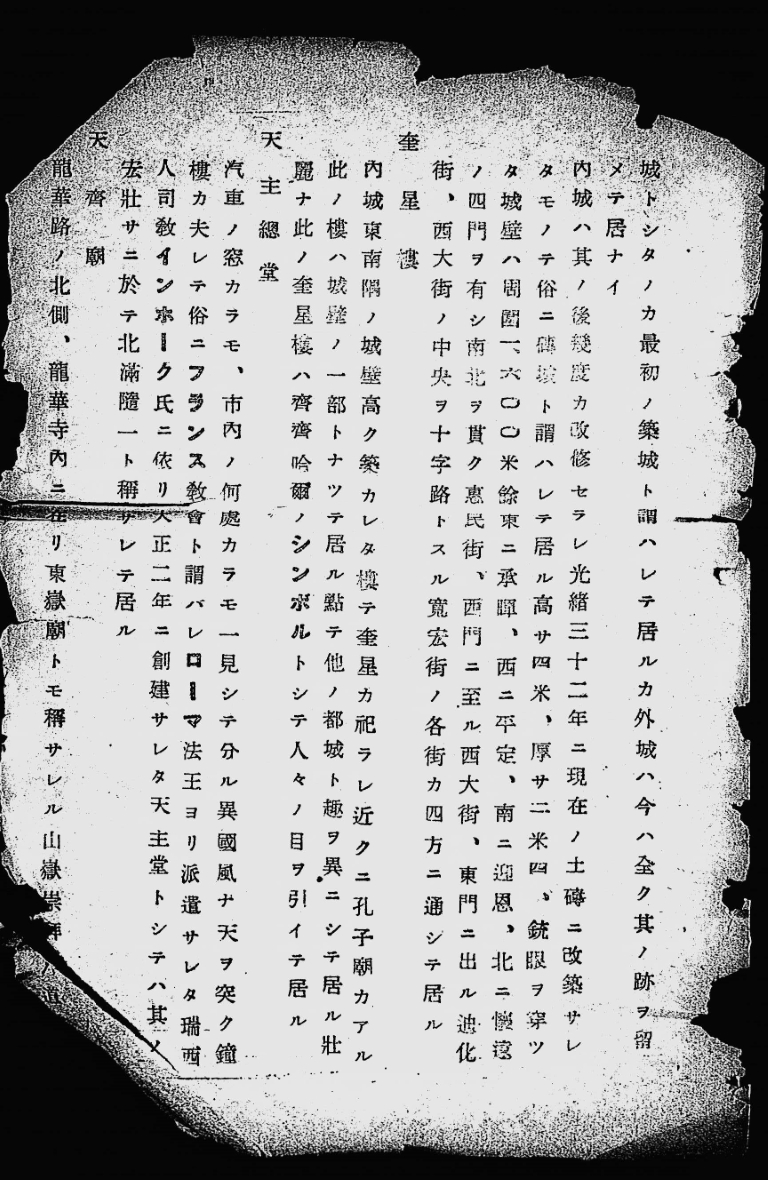 城トシタノカ最初ノ築城ト謂ハレテ居ルカ外城ハ今ハ全ク其ノ跡ヲ留
メテ居ナイ
內城ハ其ノ後幾度カ改修セラレ光緖三十二年ニ現在ノ土磚ニ改築サレ
タモノテ俗ニ磚城ト謂ハレテ居ル高サ四米、厚サ二米四、銃眼ヲ穿ツ
タ城壁ハ周圍一、六〇〇米餘東ニ承暉、西ニ平定、南ニ迎恩、北ニ懷遠
ノ四門ヲ有シ南北ヲ貫ク惠民街、西門ニ至ル西大街、東門ニ出ル迪化
街、西大街ノ中央ヲ十字路トスル寬宏街ノ各街カ四方ニ通シテ居ル
奎星樓
內城東南隅ノ城壁高ク築カレタ樓テ奎星カ祀ラレ近クニ孔子廟カアル
此ノ樓ハ城壁ノ一部トナツテ居ル點テ他ノ都城ト趣ヲ異ニシテ居ル壯
麗ナ此ノ奎星樓ハ齊齊哈爾ノシンボルトシテ人々ノ目ヲ引イテ居ル
天主總堂
汽車ノ窓カラモ、市內ノ何處カラモ一見シテ分ル異國風ナ天ヲ突ク鐘
樓カ夫レテ俗ニフランス敎會ト謂バレローマ法王ヨリ派遣サレタ瑞西
人司敎インホーク氏ニ依リ大正二年ニ創建サレタ天主堂トシテハ其ノ
宏壯サニ於テ北滿隨一ト稱サレテ居ル
天齊廟
龍華路ノ北側、龍華寺內ニ在リ東嶽廟トモ稱サレル山嶽崇拜